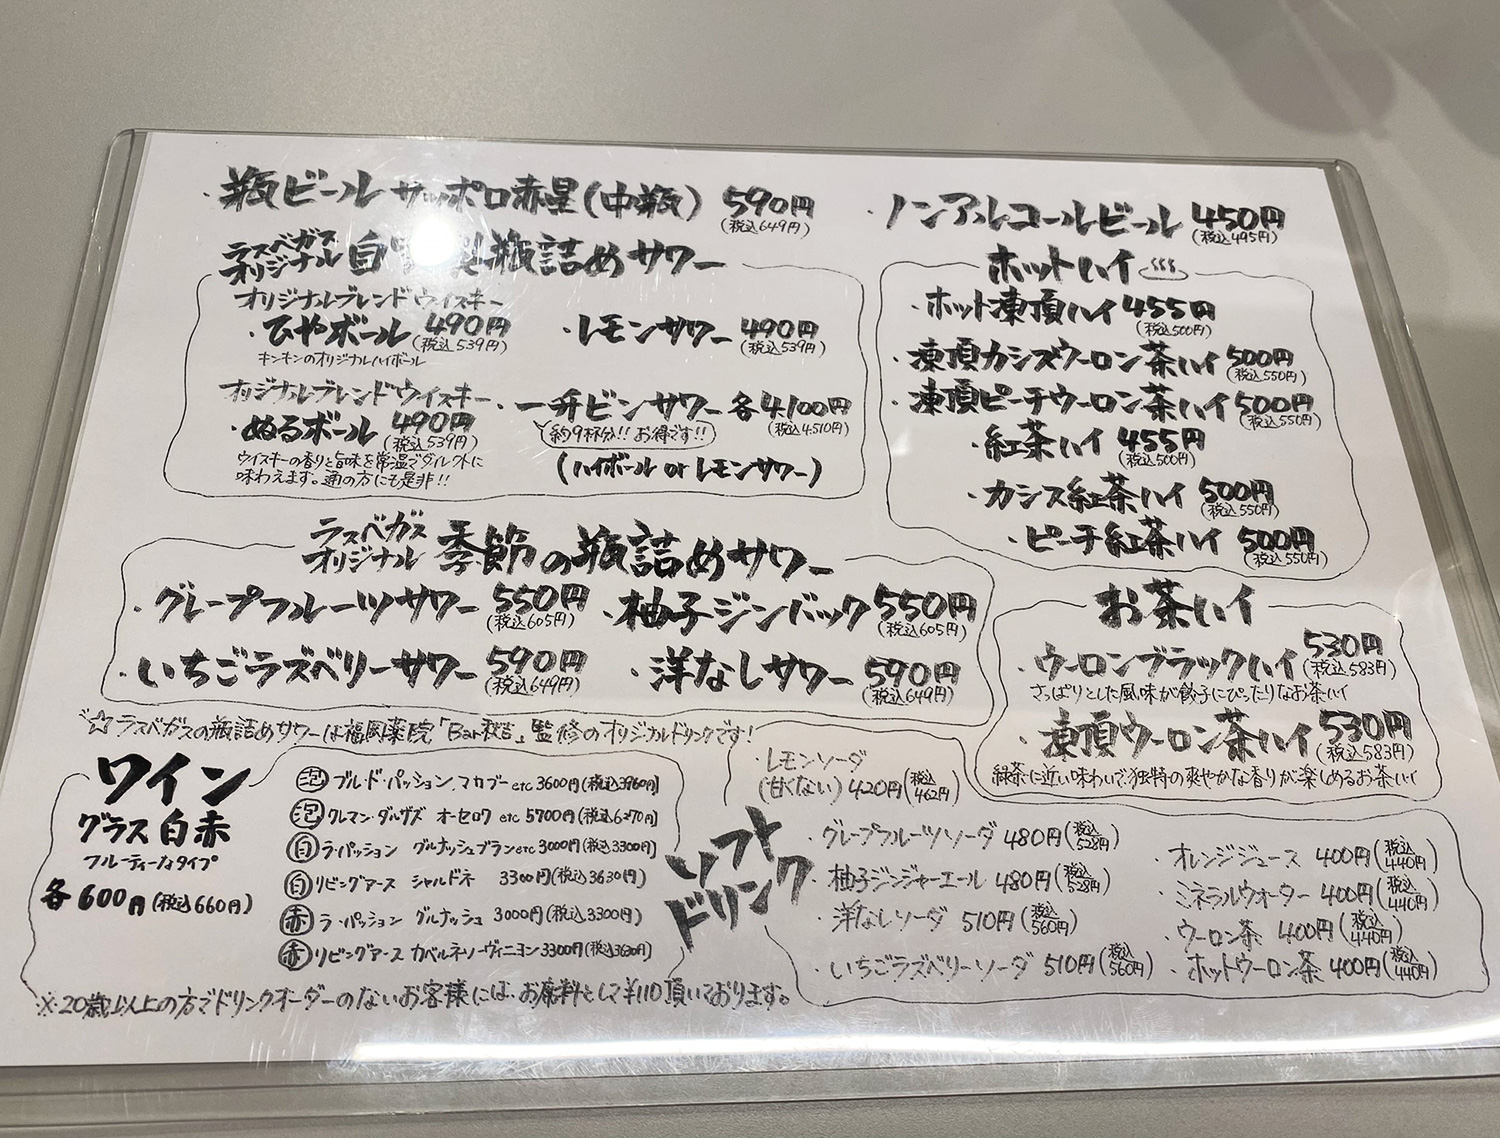 ・瓶ビール サッポロ赤星(中瓶) 590円
(税込649円)
ラスベガス
オリジナル 自 瓶詰めサワー
オリジナルブレンドウイスキー
・ひやボール 490円
(税込539円)
キンキンのオリジナルハイボール
・レモンサワー 490円
(税込539円)
オリジナルブレンドウイスキー
・ぬるボール 490円
(税込539円)
ウイスキーの香りと旨味を常温でダイレクトに
味わえます。通の方にも是非!!
・一升ビンサワー 各4,100円
(税込4,510円)
約9杯分!! お得です!!
(ハイボール or レモンサワー)
ラスベガス
オリジナル 季節の瓶詰めサワー
・グレープフルーツサワー 550円
(税込605円)
・柚子ジンバック 550円
(税込605円)
・いちごラズベリーサワー 590円
(税込649円)
・洋なしサワー 590円
(税込649円)
☆ラスベガスの瓶詰めサワーは福岡薬院「Bar秋吉」監修のオリジナルドリンクです!
・ノンアルコールビール 450円
(税込495円)
ホットハイ
・ホット凍頂ハイ 455円
(税込500円)
・凍頂カシスウーロン茶ハイ 500円
(税込550円)
・凍頂ピーチウーロン茶ハイ 500円
(税込550円)
・紅茶ハイ 455円
(税込500円)
・カシス紅茶ハイ 500円
(税込550円)
・ピーチ紅茶ハイ 500円
(税込550円)
お茶ハイ
・ウーロンブラックハイ 530円
(税込583円)
さっぱりとした風味が餃子にぴったりなお茶ハイ
・凍頂ウーロン茶ハイ 530円
(税込583円)
緑茶に近い味わいで独特の爽やかな香りが楽しめるお茶ハイ
ワイン
グラス 白赤
フルーティーなタイプ
各600円(税込660円)
泡 ブルード・パッション マカブーetc 3600円(税込3960円)
泡 クレマン・ダルザズ オーセロワ etc 5700円(税込6270円)
白 ラ・パッション グルナッシュブランetc 3000円(税込3300円)
白 リビングアース シャルドネ 3300円(税込3630円)
赤 ラ・パッション グルナッシュ 3000円(税込3300円)
赤 リビングアース カベルネ・ソーヴィニヨン 3300円(税込3630円)
ソフト
ドリンク
・レモンソーダ
(甘くない) 420円(税込462円)
・グレープフルーツソーダ 480円(税込528円)
・柚子ジンジャーエール 480円(税込528円)
・洋なしソーダ 510円(税込560円)
・いちごラズベリーソーダ 510円(税込560円)
・オレンジジュース 400円(税込440円)
・ミネラルウォーター 400円(税込440円)
・ウーロン茶 400円(税込440円)
・ホットウーロン茶 400円(税込440円)
※20歳以上の方でドリンクオーダーのないお客様には、お席料として¥110頂いております。